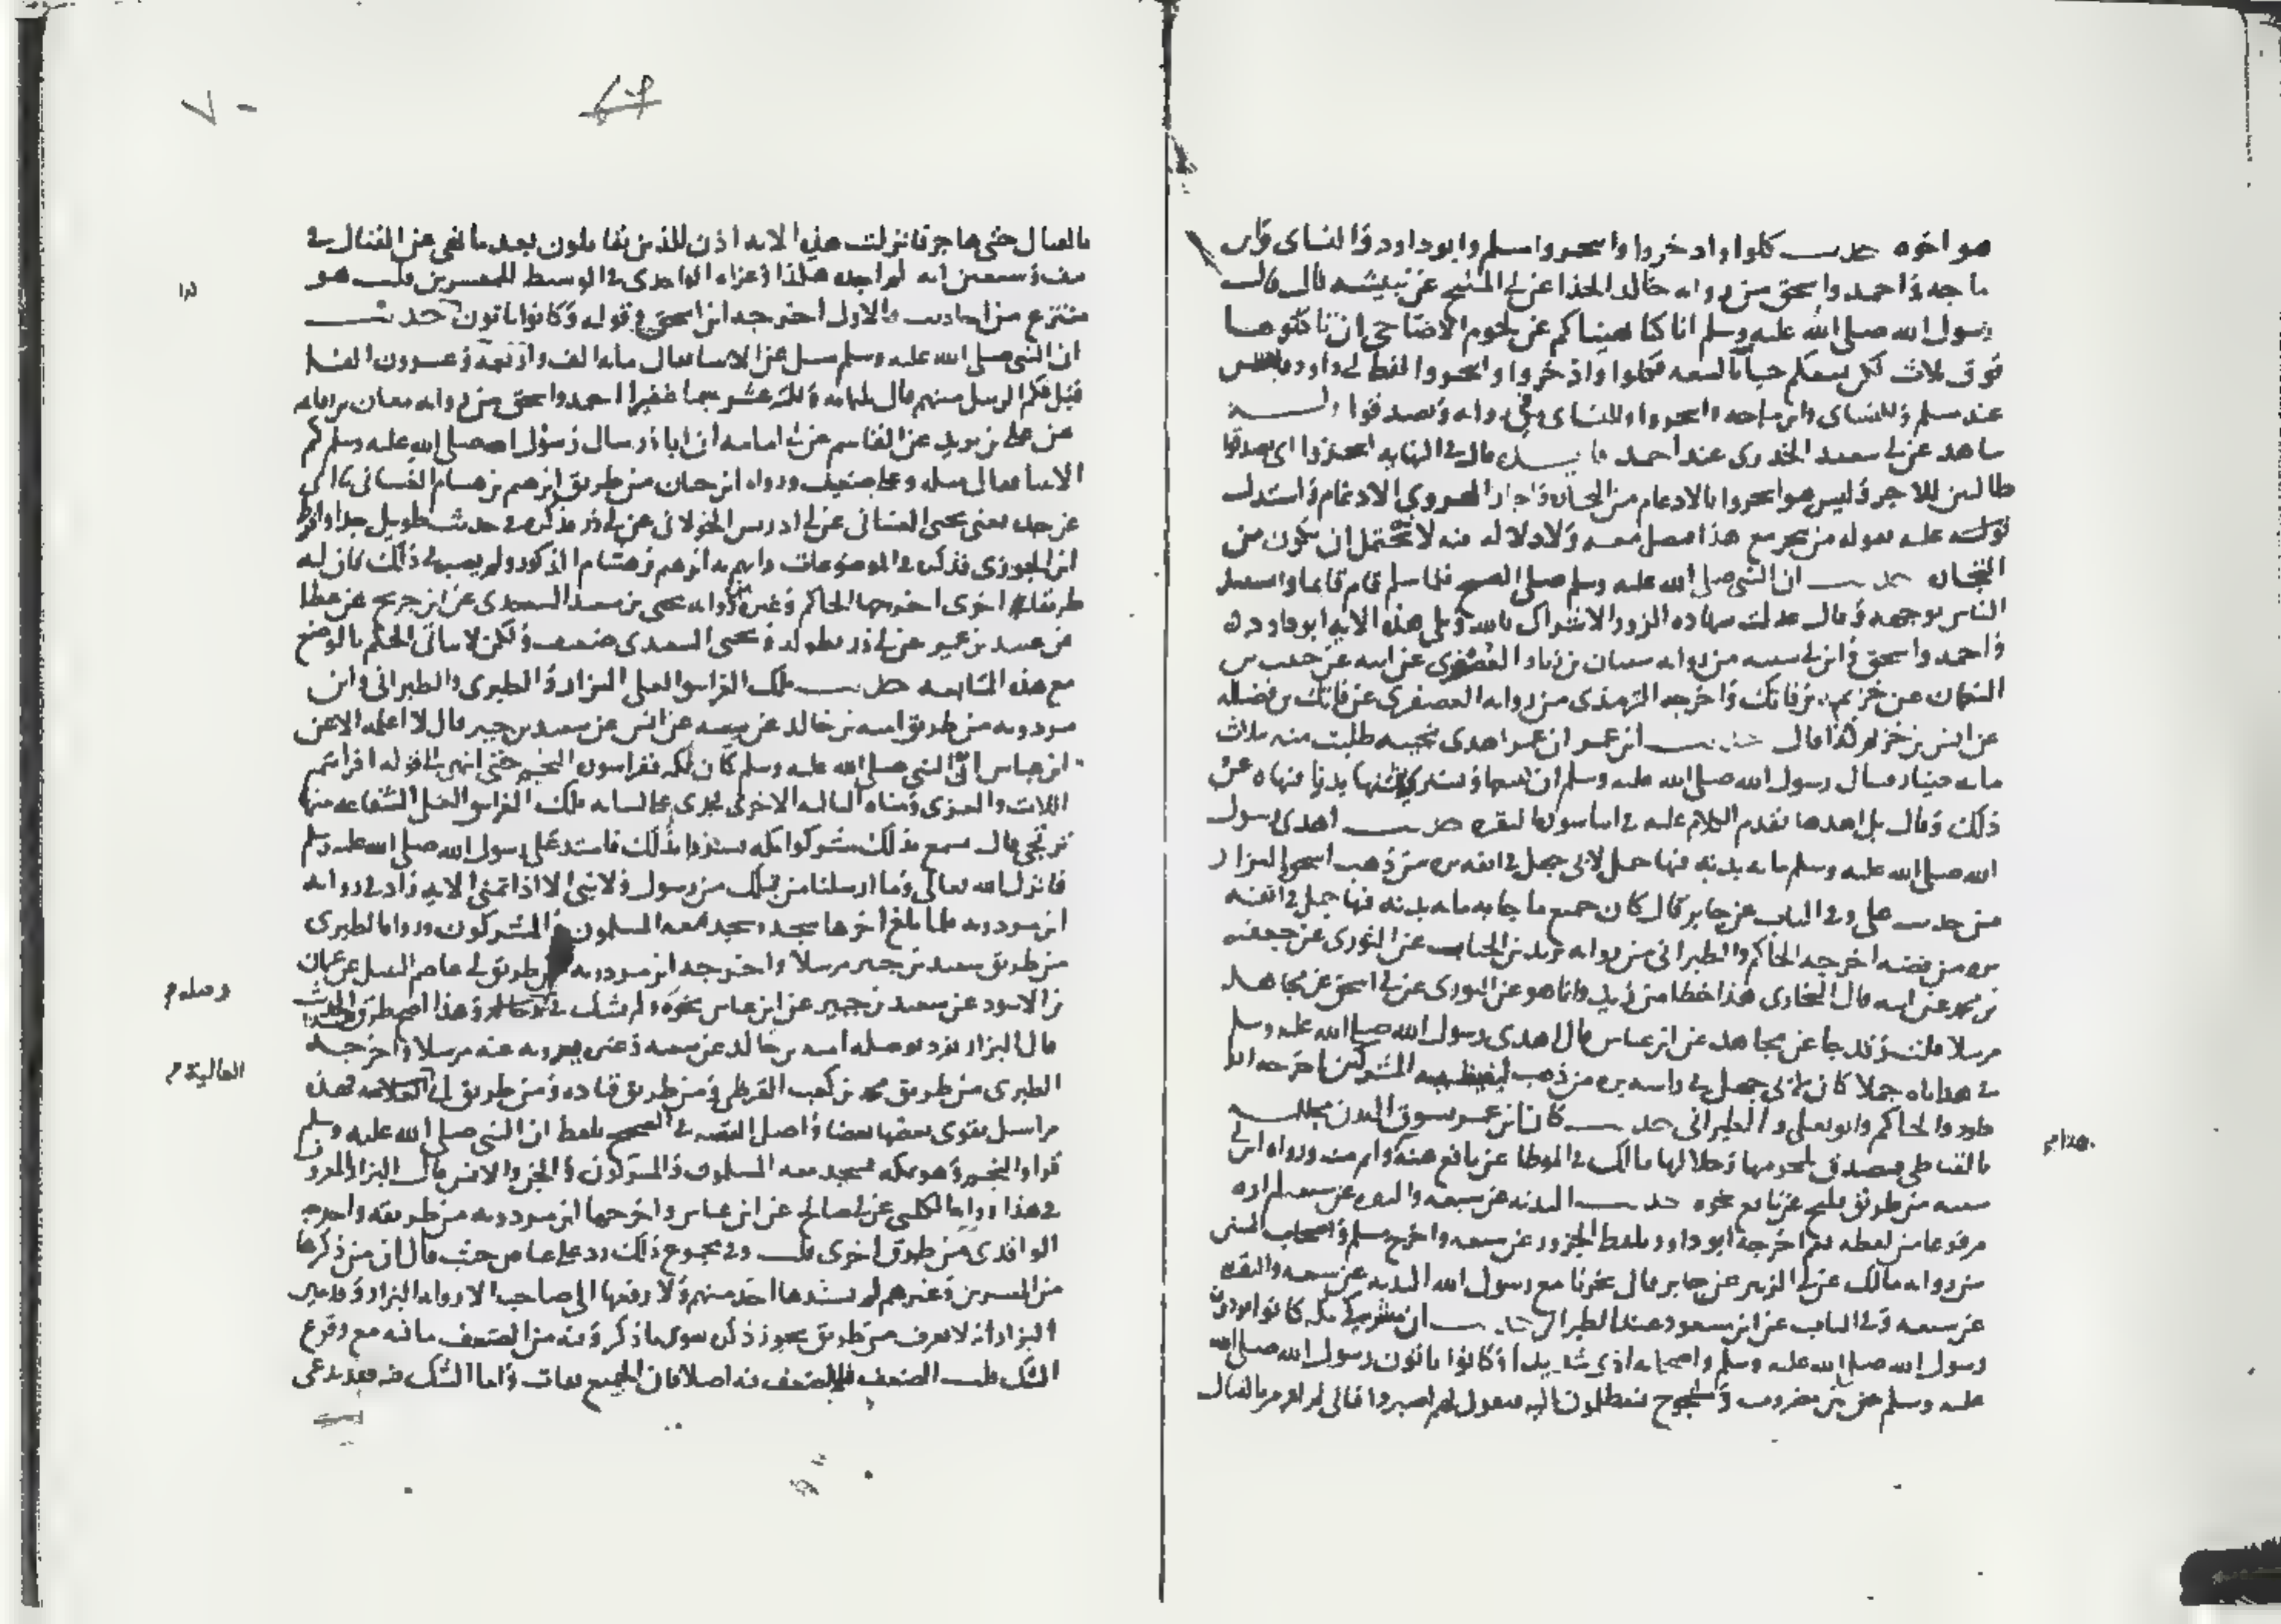 هو اخوه حديث كلوا وادخروا وائتجروا مسلم وابوداود والنساى وابن
ماجه واحمد واسحق من روايه خالد الحذا عن ابى المليح عن نبيشه قال قال
رسول الله صلى الله عليه وسلم انا كنا نهيناكم عن لحوم الاضاحي ان تاكلوها
فوق ثلاث لكى يسعكم جا الله بالسعه فكلوا وادخروا وائتجروا لفظ ابى داود
عند مسلم وللنساى وابن ماجه وائتجروا وللنساى فى روايه وتصدقوا وله
شاهد عن ابى سعيد الخدرى عند احمد قال فى النهايه ائتجروا اى تصدقوا
طالبين للاجر وليس هو اتجروا بالادغام من التجاره واجاز الهروى الادغام واستدل
عليه بقوله من يتجر مع هذا فيصلى معه ولا دلاله فيه لانه يحتمل ان يكون من
التجاره حديث ان النبى صلى الله عليه وسلم صلى الصبح فلما سلم قام قايما واستقبل
الناس بوجهه وقال عدلت شهاده الزور الاشراك بالله وتلى هذه الايه ابوداود
واحمد واسحق وابن ابى شيبه من روايه سفيان بن زياد العصفرى عن ابيه عن حبيب بن
النعمان عن خزيم بن فاتك واخرجه الترمذى من روايه العصفرى عن فاتك بن فضاله
عن ايمن بن خزيم كذا قال حديث ابن عمر ان عمر اهدى نجيبه طلبت منه بثلاث
مايه دينار فسال رسول الله صلى الله عليه وسلم ان يبيعها ويشترى بثمنها بدنا فنهاه عن
ذلك وقال بل اهدها تقدم الكلام عليه فى البقره حديث اهدى رسول
الله صلى الله عليه وسلم مايه بدنه فيها جمل لابى جهل فى انفه بره من ذهب اسحق والبزار
من حديث على وفى الباب عن جابر قال كان جميع ما جا به مايه بدنه فيها جمل فى انفه
بره من فضه اخرجه الحاكم والطبرانى من روايه زيد بن الحباب عن الثورى عن جعفر
بن محمد عن ابيه قال البخارى هذا خطا من زيد وانما هو عن الثورى عن ابى اسحق عن مجاهد
مرسلا قلت وقد جا عن مجاهد عن ابن عباس قال اهدى رسول الله صلى الله عليه وسلم
فى هداياه جملا كان لابى جهل فى راسه بره من ذهب ليغيظ به المشركين اخرجه ابو
داود والحاكم وابو يعلى والطبرانى حديث كان ابن عمر يسوق البدن مجلله
بالقباطى فيتصدق بلحومها وجلالها مالك فى الموطا عن نافع عنه ورواه ابن ابى
شيبه من طريق فليح عن نافع نحوه حديث البدنه عن سبعه والبقره عن سبعه لم اره
مرفوعا من لفظه نعم اخرجه ابوداود بلفظ الجزور عن سبعه واخرج مسلم واصحاب السنن
من روايه مالك عن ابى الزبير عن جابر قال نحرنا مع رسول الله البدنه عن سبعه والبقره
عن سبعه وفى الباب عن ابن مسعود عند الطبرانى حديث ان مشركى مكه كانوا يوذون
رسول الله صلى الله عليه وسلم واصحابه اذى شديدا وكانوا ياتون رسول الله صلى الله
عليه وسلم من بين مضروب ومشجوج يتظلمون اليه فيقول لهم اصبروا فانى لم اومر بالقتال
هذا م
٧٠
بالقتال حتى هاجر فانزلت هذه الايه اذن للذين يقاتلون بعد ما نهى عن القتال فى
نيف وسبعين ايه لم اجده هكذا وعزاه الواحدى فى الوسيط للمفسرين قلت هو
منتزع من احاديث والاول اخرجه ابن اسحق وقوله وكانوا ياتون حديث
ان النبى صلى الله عليه وسلم سيل عن الانبيا فقال مايه الف واربعه وعشرون الفا
قيل فكم الرسل منهم قال ثلثمايه وثلثه عشر جما غفيرا احمد واسحق من روايه معان بن رفاعه
عن على بن يزيد عن القاسم عن ابى امامه ان ابا ذر سال رسول الله صلى الله عليه وسلم كم
الانبيا فقال مثله وعلى ضعيف ورواه ابن حبان من طريق ابرهيم بن هشام الغسانى
عن جده يعنى يحيى الغسانى عن ابى ادريس الخولانى عن ابى ذر فذكره فى حديث طويل جدا وافرط
ابن الجوزى فذكره فى الموضوعات واتهم به ابرهيم بن هشام المذكور ولم يصب فى ذلك فان له
طريقا اخرى اخرجها الحاكم وغيره من روايه يحيى بن سعيد السعيدى عن ابن جريج عن عطا
عن عبيد بن عمير عن ابى ذر بطوله ويحيى السعيدى ضعيف ولكن لا ياتى الحكم بالوضع
مع هذه المتابعه حديث تلك الغرانيق العلى البزار والطبرى والطبرانى وابن
مردويه من طريق اميه بن خالد عن شعبه عن ابى بشر عن سعيد بن جبير قال لا اعلمه الا عن
ابن عباس ان النبى صلى الله عليه وسلم كان بمكه فقرا سوره النجم حتى انتهى الى قوله افرايتم
اللات والعزى ومناه الثالثه الاخرى فجرى على لسانه تلك الغرانيق العلى الشفاعه منها
ترتجى قال فسمع ذلك مشركوا مكه فسروا بذلك فاشتد على رسول الله صلى الله عليه وسلم
فانزل الله تعالى وما ارسلنا من قبلك من رسول ولا نبى الا اذا تمنى الايه زاد فى روايه
ابن مردويه فلما بلغ اخرها سجد وسجد معه المسلمون والمشركون ورواه الطبرى
من طريق سعيد بن جبير مرسلا واخرجه ابن مردويه من طريق ابى عاصم النبيل عن عثمان
بن الاسود عن سعيد بن جبير عن ابن عباس نحوه ولم يشك فى وصله وهذا اصح طرق الحديث
قال البزار تفرد بوصله اميه بن خالد عن شعبه وغيره يرويه عنه مرسلا واخرجه
الطبرى من طريق محمد بن كعب القرظى ومن طريق قتاده ومن طريق ابى العاليه فهذه
مراسيل يقوى بعضها بعضا واصل القصه فى الصحيح بلفظ ان النبى صلى الله عليه وسلم
قرا والنجم وهو بمكه فسجد معه المسلمون والمشركون والجن والانس قال البزار المعروف
فى هذا روايه الكلبى عن ابى صالح عن ابن عباس واخرجها ابن مردويه من طريقه واخرجه
الواقدى من طريق اخرى قلت وفى مجموع ذلك رد على عياض حيث قال ان من ذكرها
من المفسرين وغيرهم لم يسندها احد منهم ولا رفعها الى صاحب الا روايه البزار وقد بين
البزار انه لا يعرف من طريق يجوز ذكره سوى ما ذكر وفيه من الضعف ما فيه مع وقوع
الشك قلت اما الضعف فلا ضعف فيه اصلا فان الجميع ثقات واما الشك فيه فقد يدعى
وصله م
العالية م